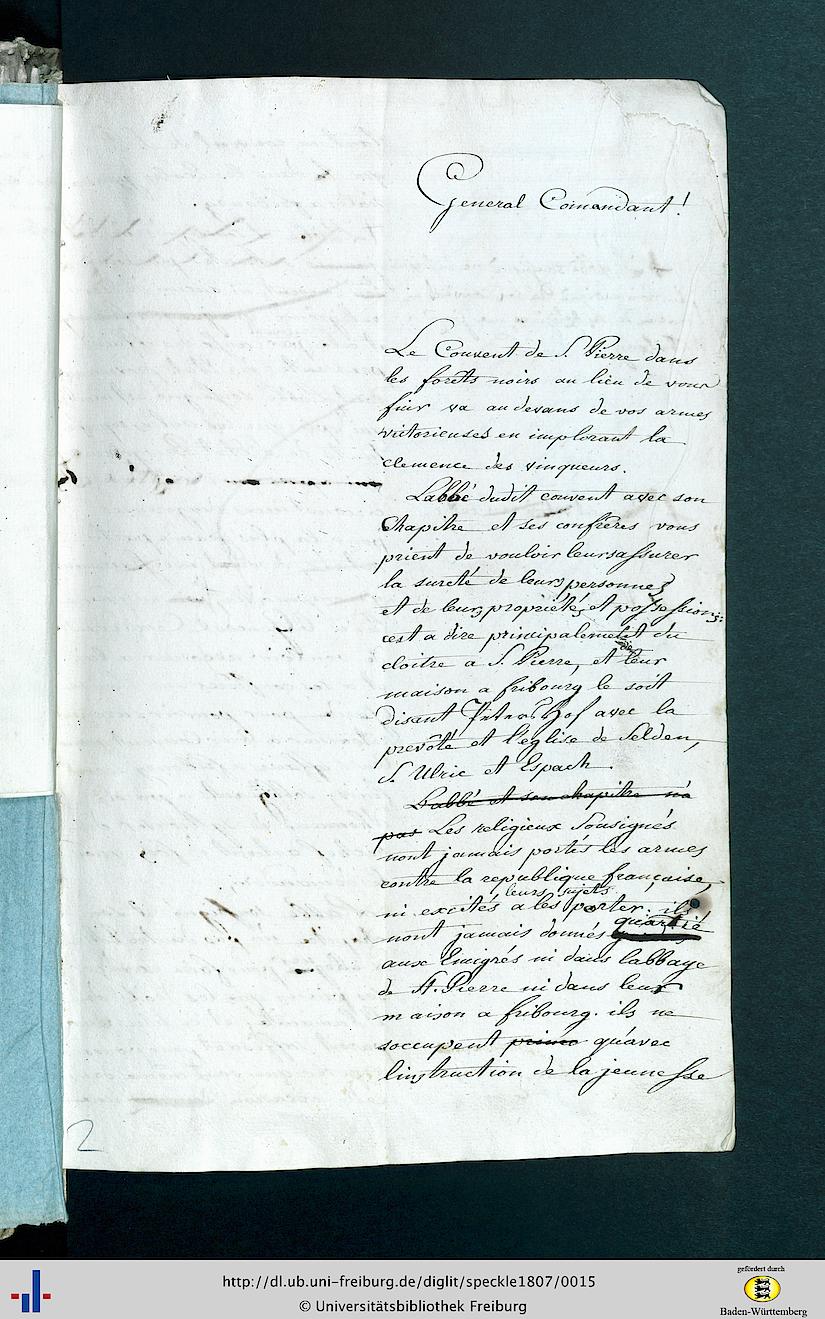 General Comandant!
Le Couvent de S. Pierre dans
les forêts noirs au lieu de vous
fuir va au devans de vos armes
victorieuses en implorant la
clemence des vinqueurs.
Labbé dudit couvent avec son
Chapitre et ses confrères vous
prient de vouloir leurs assurer
la sureté de leurs personnes
et de leurs propriétés et possessions:
cest a dire principalement du
cloitre a S. Pierre, et leur
maison a fribourg le soit
disant Petershof avec la
prevôté et l'eglise de Selden,
S. Ulric et Espach.
Labbé et son chapitre nà
pas Les religieux Sousignés
nont jamais portés les armes
contre la republique française,
leurs sujets
ni excités a les porter. ils
nont jamais donnés quartié
aux Emigrés ni dans labbaye
de St. Pierre ni dans leur
maison a fribourg. ils ne
soccupent quàvec
linstruction de la jeunesse
2
http://dl.ub.uni-freiburg.de/diglit/speckle1807/0015
© Universitätsbibliothek Freiburg
gefördert durch
Baden-Württemberg